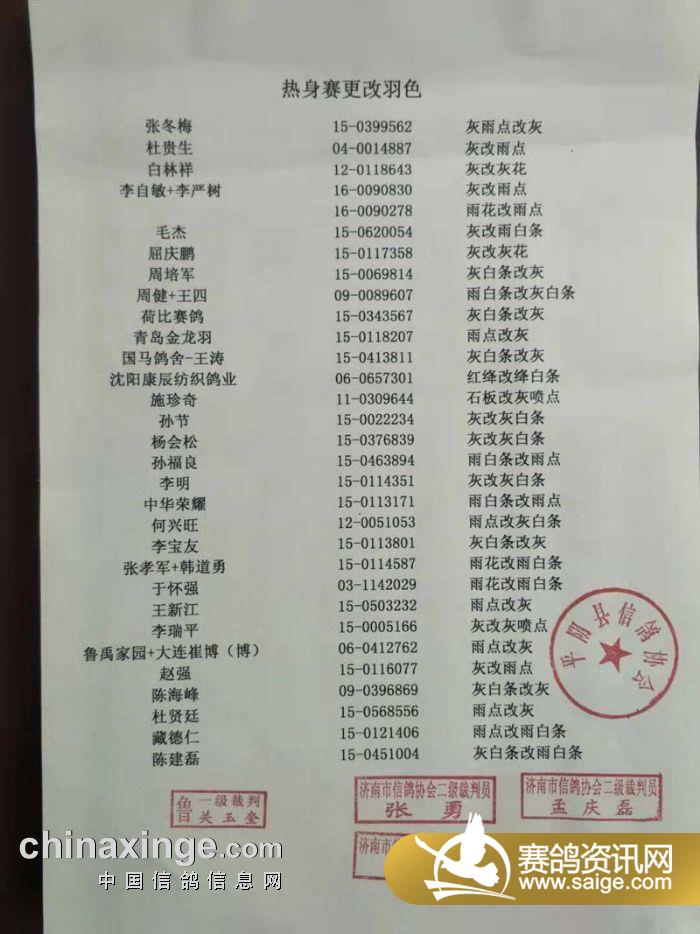 热身赛更改羽色
张冬梅 15-0399562 灰雨点改灰
杜贵生 04-0014887 灰改雨点
白林祥 12-0118643 灰改灰花
李自敏+李严树 16-0090830 灰改雨点
16-0090278 雨花改雨点
毛杰 15-0620054 灰改雨白条
屈庆鹏 15-0117358 灰改灰花
周培军 15-0069814 灰白条改灰
周健+王四 09-0089607 雨白条改灰白条
荷比赛鸽 15-0343567 灰白条改灰
青岛金龙羽 15-0118207 雨点改灰
国马鸽舍-王涛 15-0413811 灰白条改灰
沈阳康辰纺织鸽业 06-0657301 红绛改绛白条
施珍奇 11-0309644 石板改灰喷点
孙节 15-0022234 灰改灰白条
杨会松 15-0376839 灰改灰白条
孙福良 15-0463894 雨白条改雨点
李明 15-0114351 灰改灰白条
中华荣耀 15-0113171 雨白条改雨点
何兴旺 12-0051053 雨点改灰白条
李宝友 15-0113801 灰白条改灰
张孝军+韩道勇 15-0114587 雨花改雨白条
于怀强 03-1142029 雨花改雨白条
王新江 15-0503232 雨点改灰
李瑞平 15-0005166 灰改灰喷点
鲁禹家园+大连崔博（博） 06-0412762 雨点改灰
赵强 15-0116077 灰改雨点
陈海峰 09-0396869 灰白条改灰
杜贤廷 15-0568556 雨点改灰
藏德仁 15-0121406 雨点改雨白条
陈建磊 15-0451004 灰白条改雨白条
平阴县信鸽协会
一级裁判
关玉奎
济南市信鸽协会二级裁判员
张勇
济南市信鸽协会二级裁判员
孟庆磊
济南市信
chinaxinge.com
中国信鸽信息网
赛鸽资讯网
www.saige.com